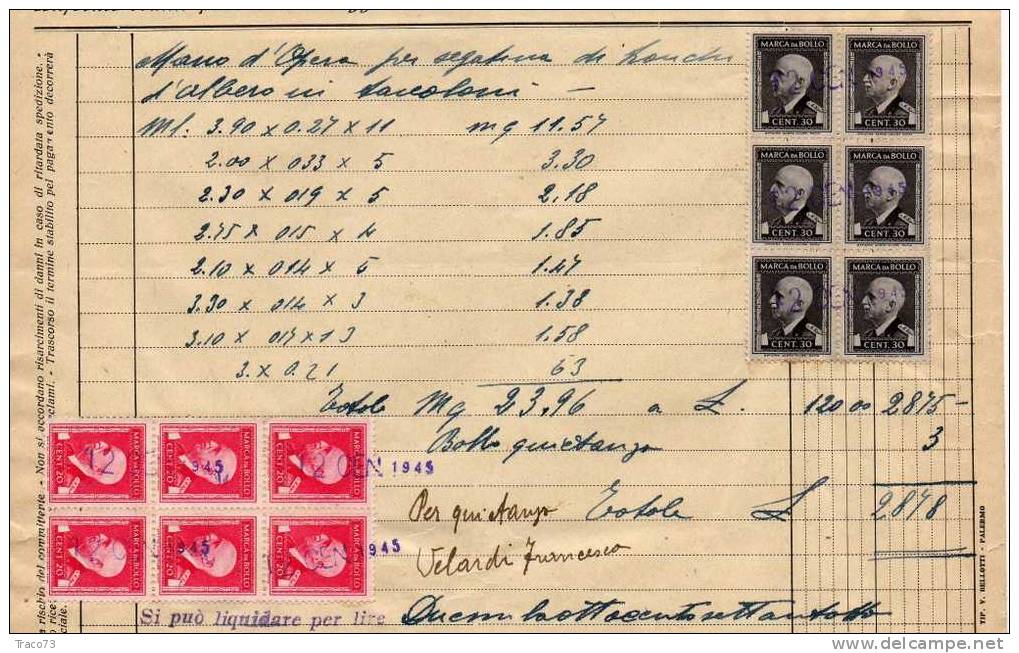 Mano d'Opera per segatura di tronchi
d'albero in tavoloni —
Ml. 3.90 x 0.27 x 11 mq 11.57
2.00 x 033 x 5 3.30
2.30 x 019 x 5 2.18
2.75 x 015 x 4 1.85
2.10 x 014 x 5 1.47
3.30 x 014 x 3 1.38
3.10 x 017 x 3 1.58
3. x 0.21 63
Totale Mq 23,96 a L. 120 00 2875 —
Bollo quietanza 3
Per quietanza Totale L 2878
Velardi Francesco
Si può liquidare per lire Duemilaottocentosettantotto
MARCA DA BOLLO
CENT. 30
MARCA DA BOLLO
CENT. 30
MARCA DA BOLLO
CENT. 30
MARCA DA BOLLO
CENT. 30
MARCA DA BOLLO
CENT. 30
MARCA DA BOLLO
CENT. 30
MARCA DA BOLLO
CENT. 20
MARCA DA BOLLO
CENT. 20
MARCA DA BOLLO
CENT. 20
MARCA DA BOLLO
CENT. 20
MARCA DA BOLLO
CENT. 20
MARCA DA BOLLO
CENT. 20
12 GEN 1945
rischio del committente. - Non si accordano risarcimenti di danni in caso di ritardata spedizione. -
clami. - Trascorso il termine stabilito pel pagamento decorrerà
TIP. V. BELLOTTI - PALERMO
Traco73
delcampe.net